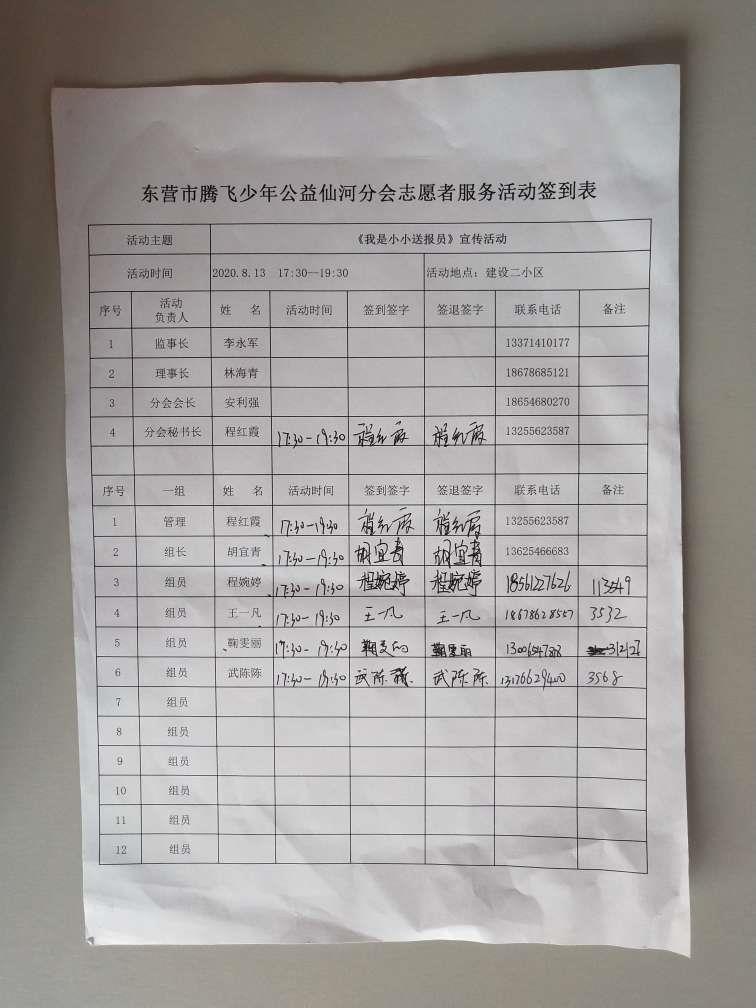 东营市腾飞少年公益仙河分会志愿者服务活动签到表
活动主题 《我是小小送报员》宣传活动
活动时间 2020.8.13 17:30—19:30 活动地点：建设二小区
序号 活动负责人 姓 名 活动时间 签到签字 签退签字 联系电话 备注
1 监事长 李永军 13371410177
2 理事长 林海青 18678685121
3 分会会长 安利强 18654680270
4 分会秘书长 程红霞 17:30-19:30 程红霞 程红霞 13255623587
序号 一组 姓 名 活动时间 签到签字 签退签字 联系电话 备注
1 管理 程红霞 17:30-19:30 程红霞 程红霞 13255623587
2 组长 胡宜青 17:30-19:30 胡宜青 胡宜青 13625466683
3 组员 程婉婷 17:30-19:30 程婉婷 程婉婷 18561227626 113549
4 组员 王一凡 17:30-19:30 王一凡 王一凡 18678628557 3532
5 组员 鞠雯丽 17:30-19:30 鞠雯丽
6 组员 武陈陈 17:30-19:30 武陈陈 武陈陈 13176629400 3568
7 组员
8 组员
9 组员
10 组员
11 组员
12 组员